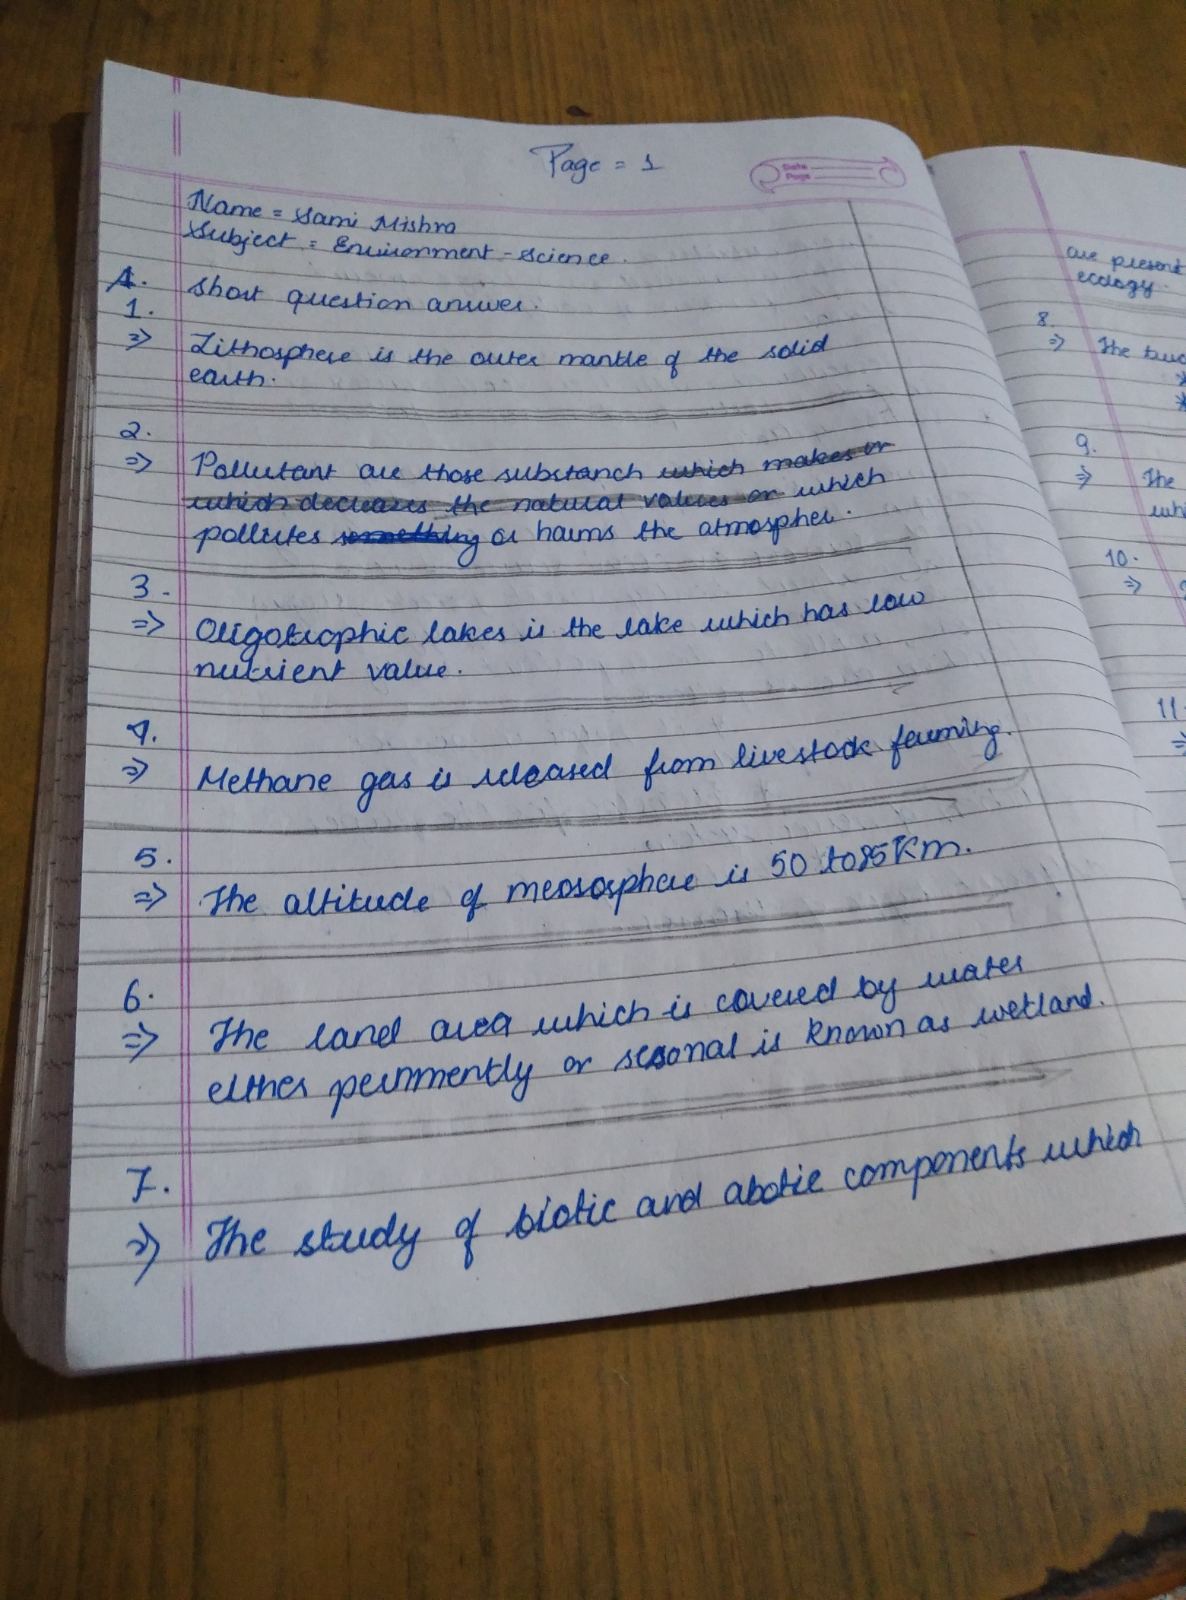 Page = 1
Date
Page
Name = Sami Mishra
Subject = Environment - Science.
A. Short question answer.
1.
=> Lithosphere is the outer mantle of the solid
earth.
2.
=> Pollutant are those substanch which makes or
which decreases the natural values or which
pollutes something or harms the atmospher.
3.
=> Oligotrophic lakes is the lake which has low
nutrient value.
4.
=> Methane gas is released from livestock farming.
5.
=> The altitude of meososphere is 50 to 85 Km.
6.
=> The land area which is covered by water
either permently or sesonal is known as wetland.
7.
=> The study of biotic and abotic components which
are present
ecology.
8.
=> The
*
*
9.
=> The
10.
=>
11.
=>